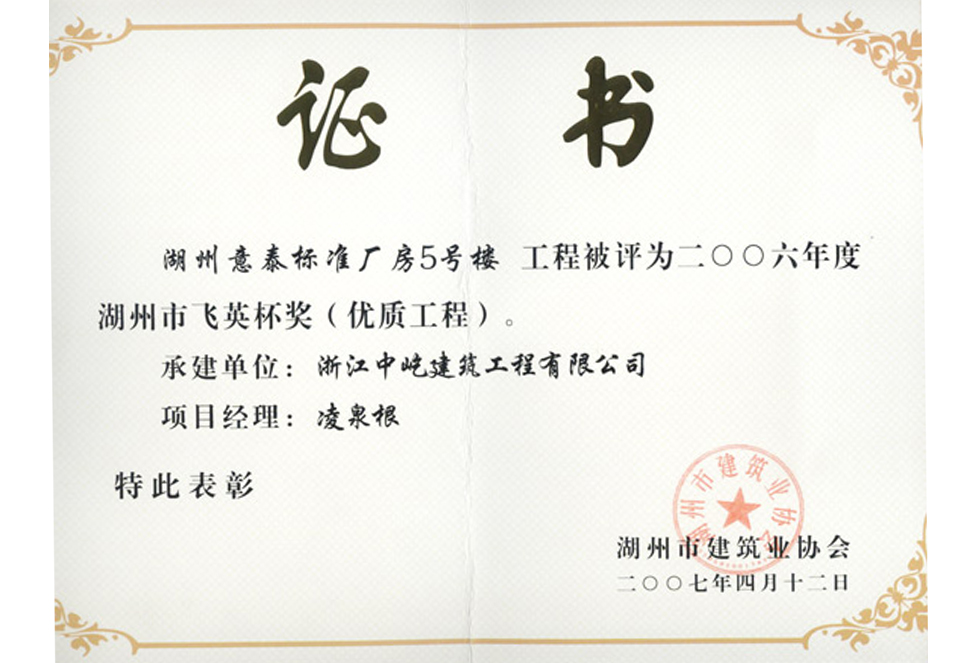 证 书
湖州意泰标准厂房5号楼 工程被评为二〇〇六年度
湖州市飞英杯奖（优质工程）。
承建单位：浙江中屹建筑工程有限公司
项目经理：凌泉根
特此表彰
湖州市建筑业协会
湖州市建筑业协会
二〇〇七年四月十二日